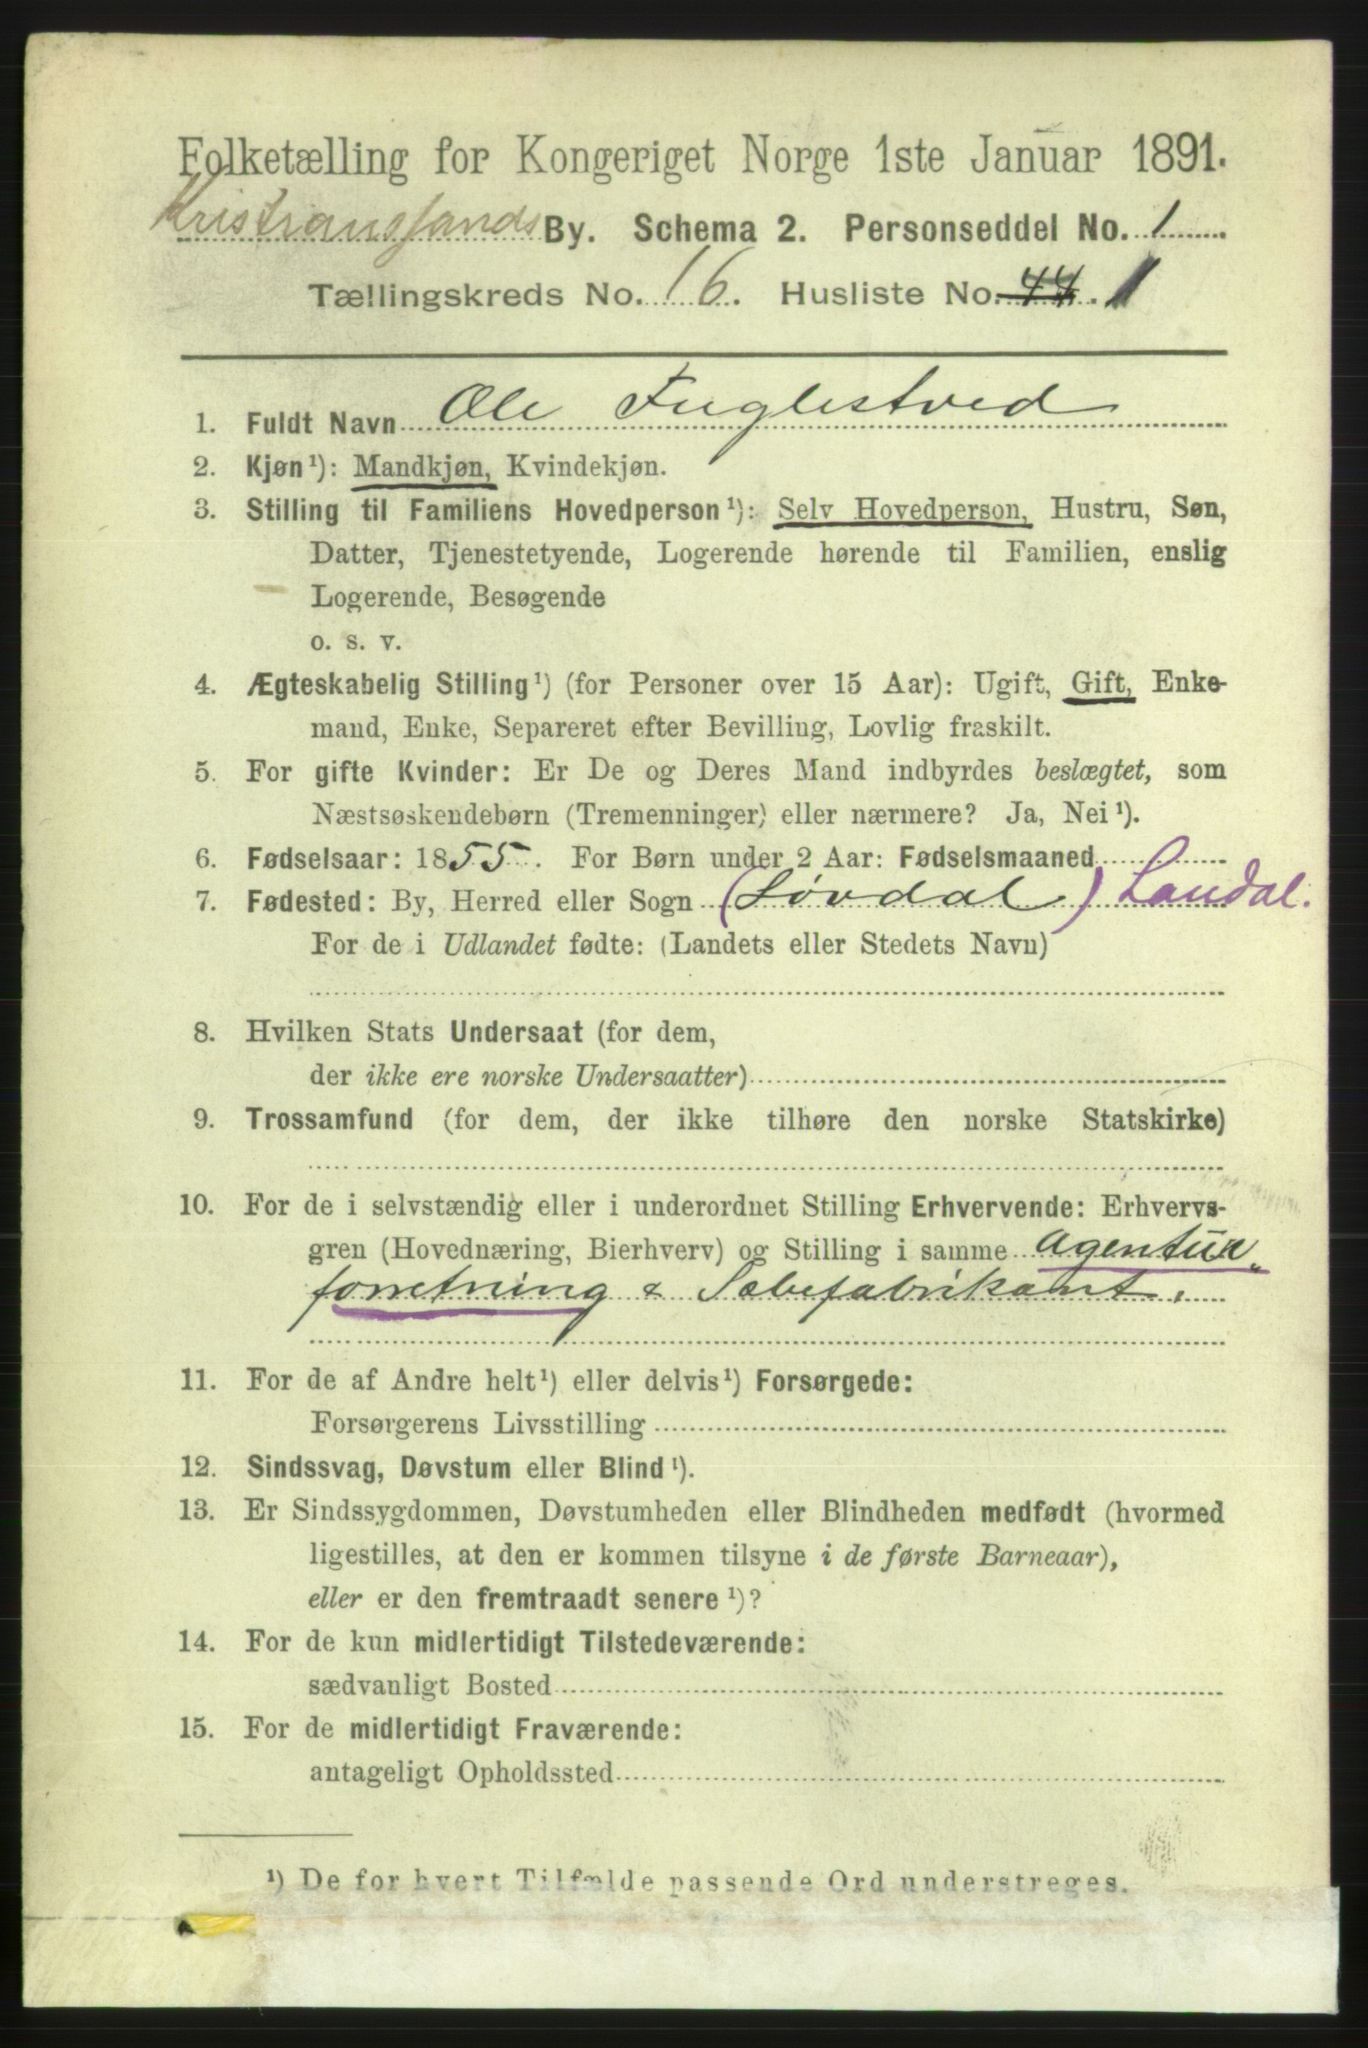 Folketælling for Kongeriget Norge 1ste Januar 1891.
Kristianssands By. Schema 2. Personseddel No. 1
Tællingskreds No. 16. Husliste No. 44. 1
1. Fuldt Navn Ole Fuglestved
2. Kjøn¹): Mandkjøn, Kvindekjøn.
3. Stilling til Familiens Hovedperson¹): Selv Hovedperson, Hustru, Søn,
Datter, Tjenestetyende, Logerende hørende til Familien, enslig
Logerende, Besøgende
o. s. v.
4. Ægteskabelig Stilling¹) (for Personer over 15 Aar): Ugift, Gift, Enke-
mand, Enke, Separeret efter Bevilling, Lovlig fraskilt.
5. For gifte Kvinder: Er De og Deres Mand indbyrdes beslægtet, som
Næstsøskendebørn (Tremenninger) eller nærmere? Ja, Nei¹).
6. Fødselsaar: 1855. For Børn under 2 Aar: Fødselsmaaned
7. Fødested: By, Herred eller Sogn (Løvdal) Laudal.
For de i Udlandet fødte: (Landets eller Stedets Navn)
8. Hvilken Stats Undersaat (for dem,
der ikke ere norske Undersaatter)
9. Trossamfund (for dem, der ikke tilhøre den norske Statskirke)
10. For de i selvstændig eller i underordnet Stilling Erhvervende: Erhvervs-
gren (Hovednæring, Bierhverv) og Stilling i samme Agentur„
forretning & Sæbefabrikant.
11. For de af Andre helt¹) eller delvis¹) Forsørgede:
Forsørgerens Livsstilling
12. Sindssvag, Døvstum eller Blind¹).
13. Er Sindssygdommen, Døvstumheden eller Blindheden medfødt (hvormed
ligestilles, at den er kommen tilsyne i de første Barneaar),
eller er den fremtraadt senere¹)?
14. For de kun midlertidigt Tilstedeværende:
sædvanligt Bosted
15. For de midlertidigt Fraværende:
antageligt Opholdssted
¹) De for hvert Tilfælde passende Ord understreges.